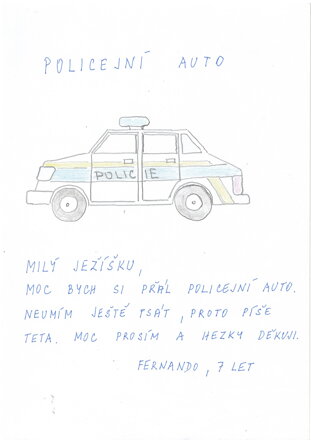 POLICEJNÍ AUTO
POLICIE
MILÝ JEŽÍŠKU,
MOC BYCH SI PŘÁL POLICEJNÍ AUTO.
NEUMÍM JEŠTĚ PSÁT, PROTO PÍŠE
TETA. MOC PROSÍM A HEZKY DĚKUJI.
FERNANDO, 7 LET